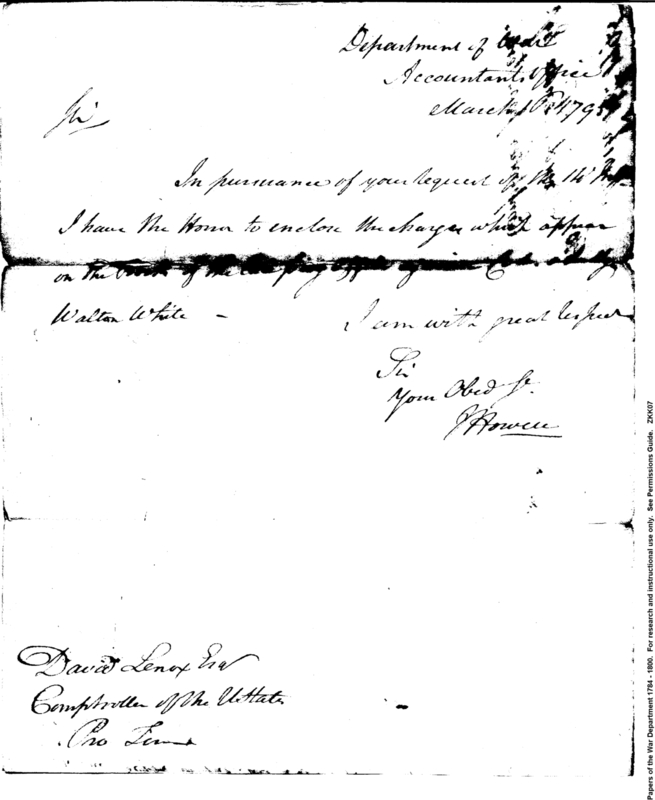 Department of War
Accountants Office
March 1795
Sir
In pursuance of your request of the 14
I have the Honor to enclose the charges which appear
on the Books of the against
Walton White -
I am with great respect
Sir
Your Obed St.
J Howell
David Lenox Esqr
Comptroller of the U States
Pro Tem
Papers of the War Department 1784 - 1800. For research and instructional use only. See Permissions Guide. ZKK07